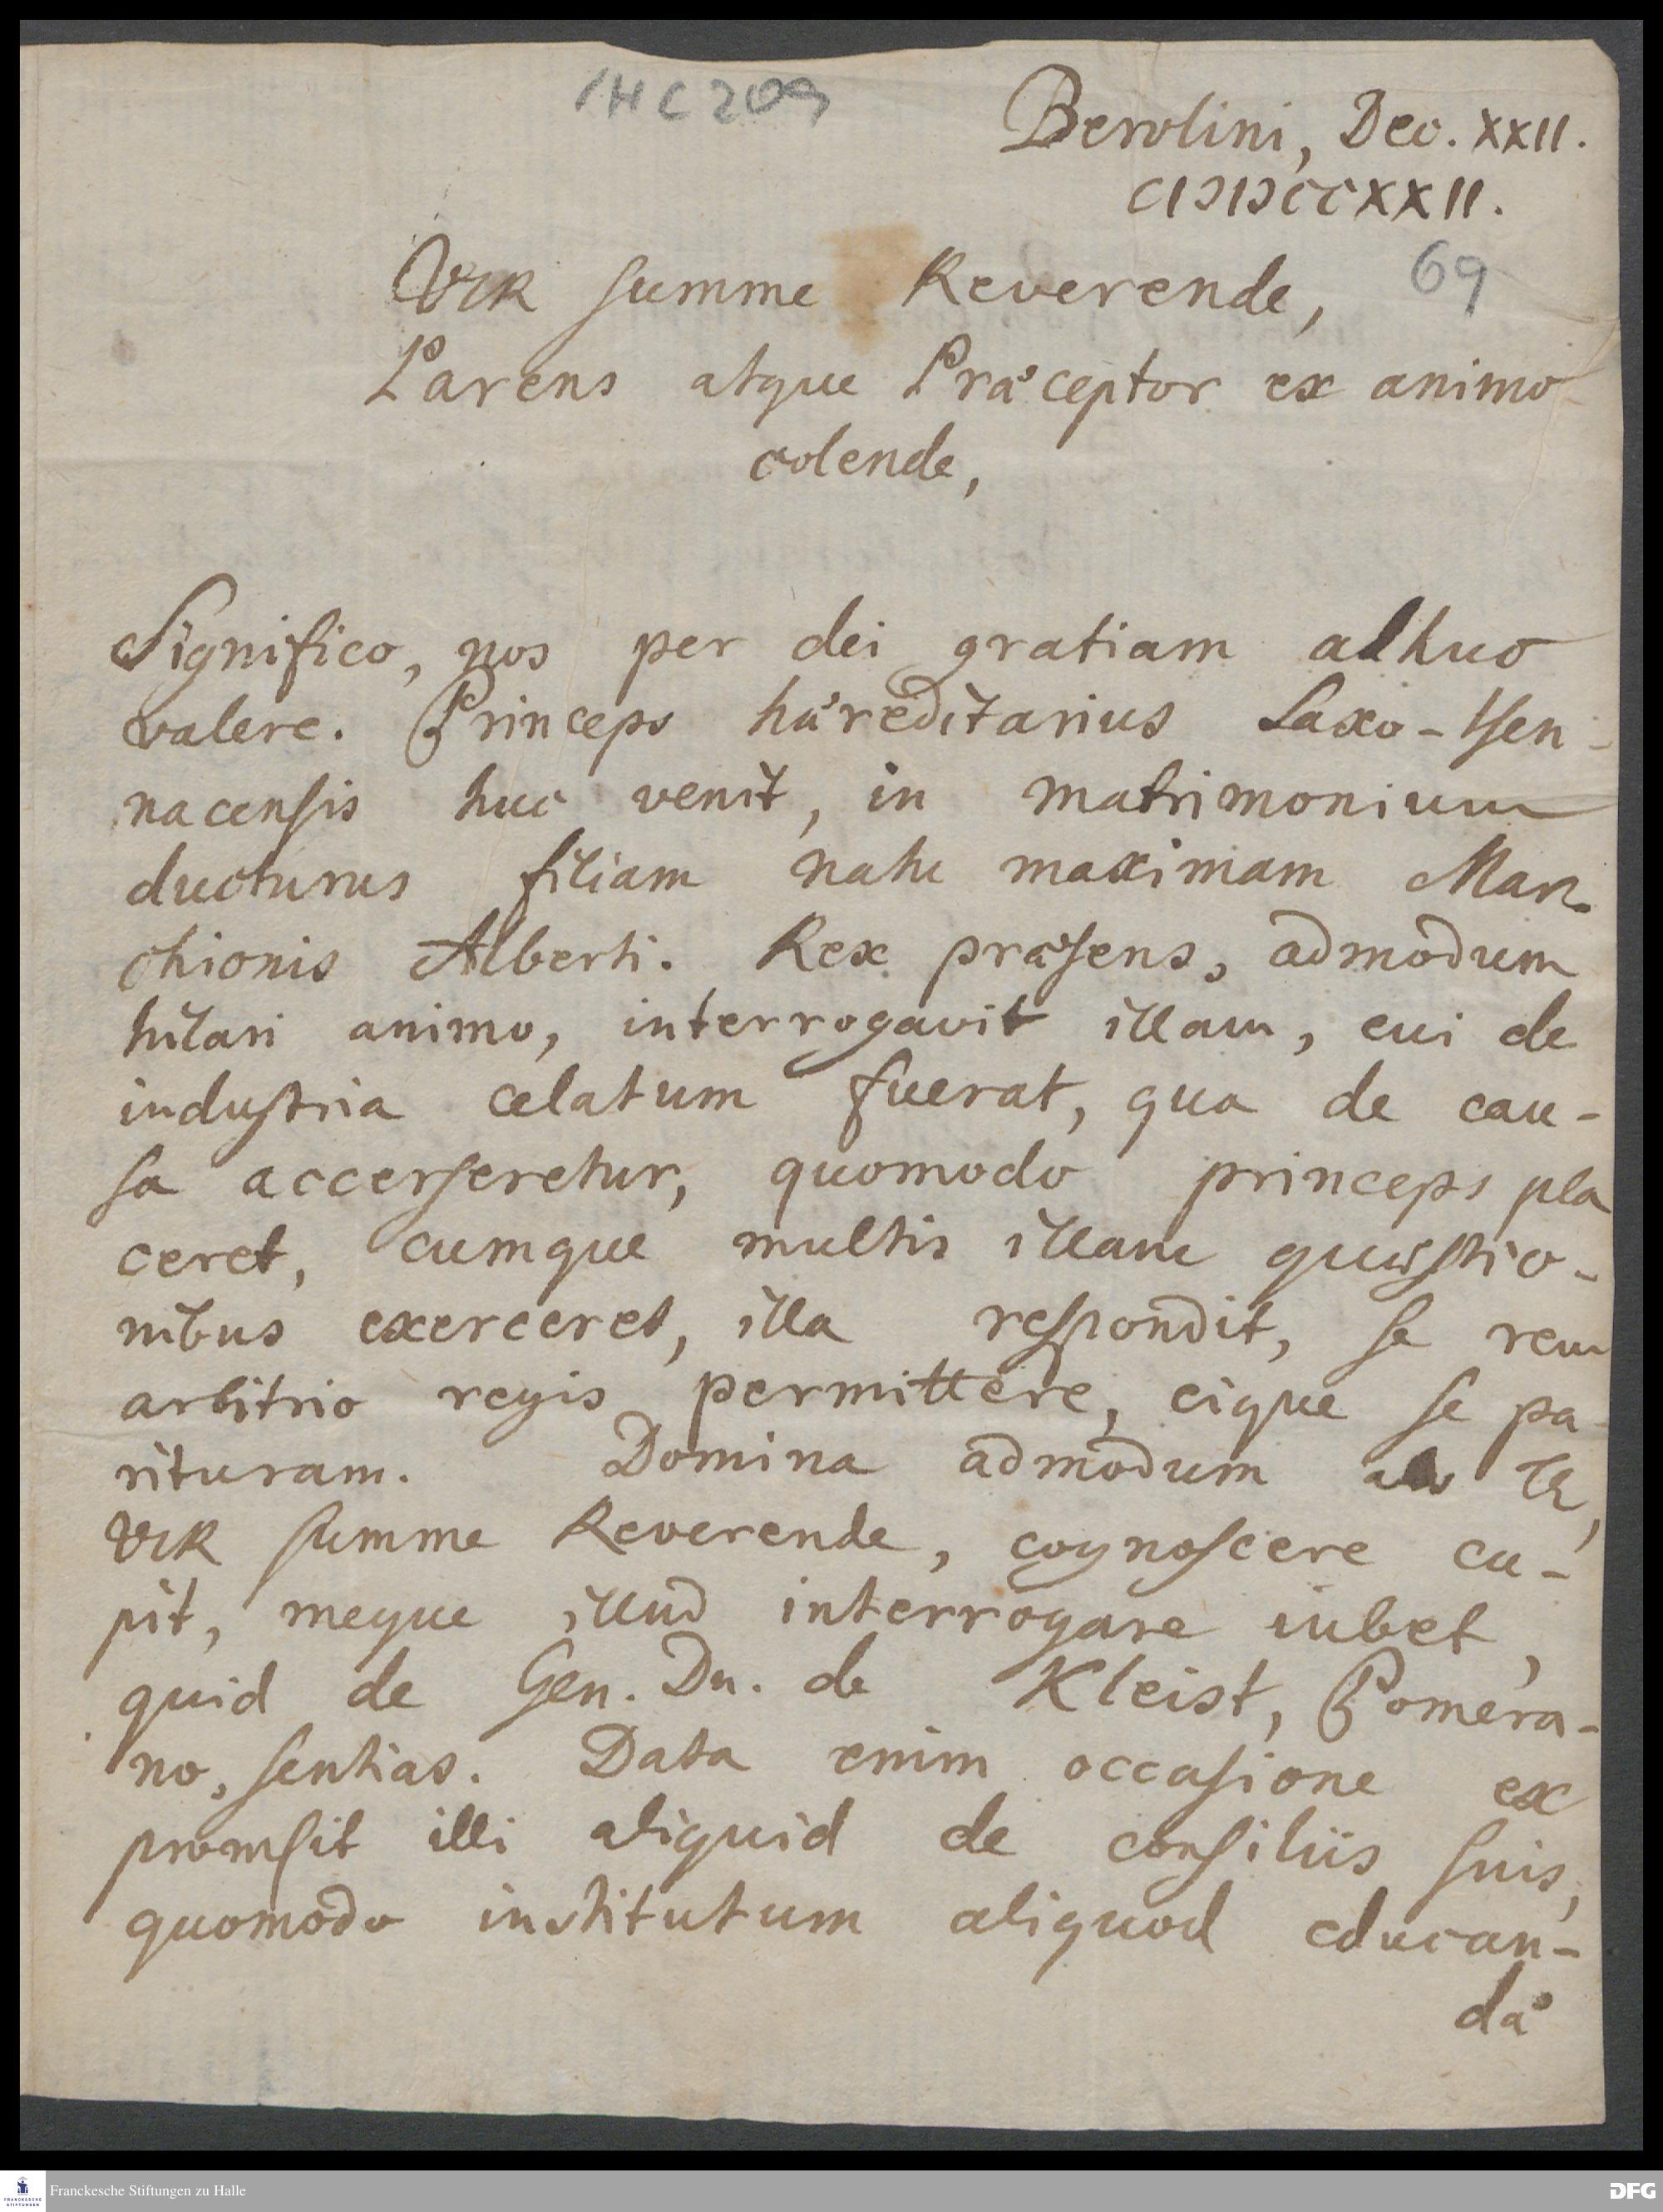 1 H C 209
Berolini, Dec. XXII.
CIƆIƆCCXXII.
69
VIR summe Reverende,
Parens atque Præceptor ex animo
colende,
Significo, nos per dei gratiam adhuc
valere. Princeps hæreditarius Saxo-Isen-
nacensis huc venit, in matrimonium
ducturus filiam natu maximam Mar-
chionis Alberti. Rex præsens, admodum
hilari animo, interrogavit illam, cui de
industria celatum fuerat, qua de cau-
sa accerseretur, quomodo princeps pla
ceret, cumque multis illam quæstio-
nibus exerceret, illa respondit, se rem
arbitrio regis permittere, eique se pa-
rituram. Domina admodum abs Te,
VIR summe Reverende, cognoscere cu-
pit, meque illud interrogare iubet,
quid de Gen. Dn. de Kleist, Pomera-
no, sentias. Data enim occasione ex
promsit illi aliquid de consiliis suis,
quomodo institutum aliquod educan-
dæ
FRANCKESCHE
STIFTUNGEN
Franckesche Stiftungen zu Halle
DFG